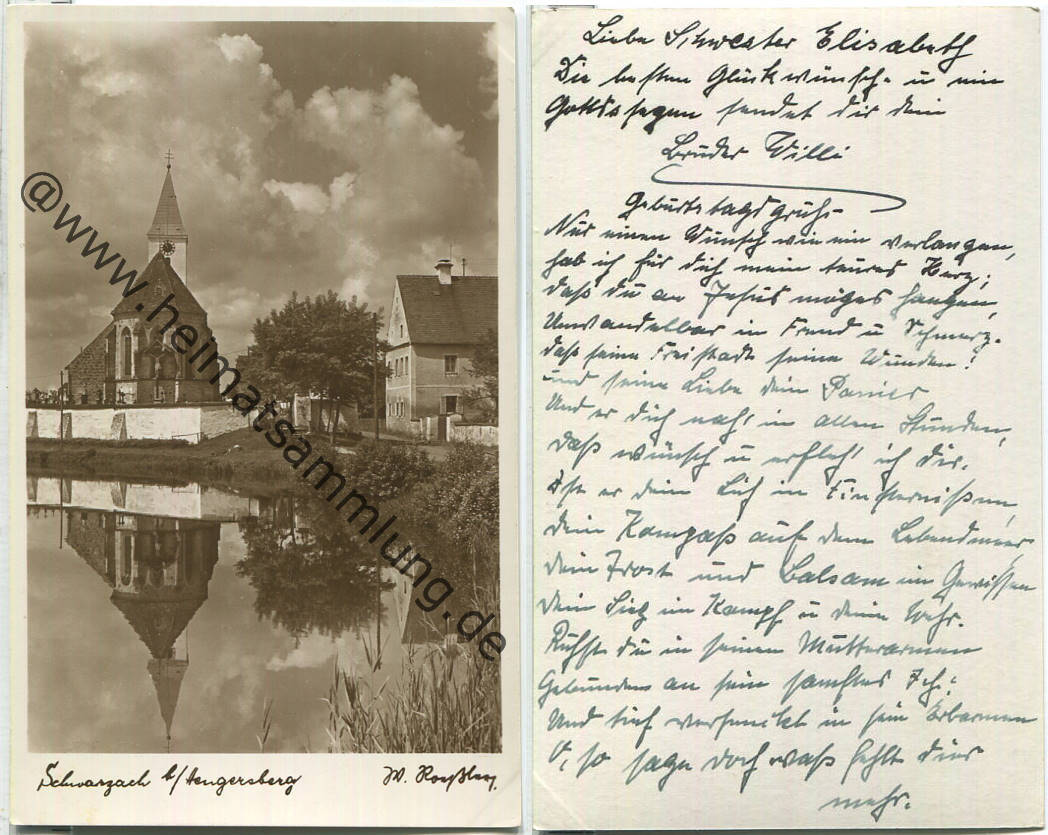 @www.heimatsammlung.de
Schwarzach b/Hengersberg
W. Roeßler,
Liebe Schwester Elisabeth
Die besten Glückwünsch. u ein
Gottessegen sendet dir dein
Bruder Willi
Geburtstagsgruß.
Nur einen Wunsch wie ein verlangen,
hab ich für dich mein teures Herz;
daß du an Jesus möges hangen,
Unwandelbar in Freud u Schmerz.
daß seine Freistadt seine Wunden!
und seine Liebe dein Panier
Und er dich nah' in allen Stunden,
daß wünsch u erfleh' ich dir.
Ist er dein Lich in Finsternißen,
dein Kompaß auf dem Lebendmeer,
dein Trost und Balsam im Gewissen
dein Sieg im Kampf u deine Wehr.
Ruhst du in seinen Mutterarmen
Gebunden an sein sanftes Ich:
Und tief versenckt in sein Erbarmen
O, so sage doch waß fehlt dier
mehr.